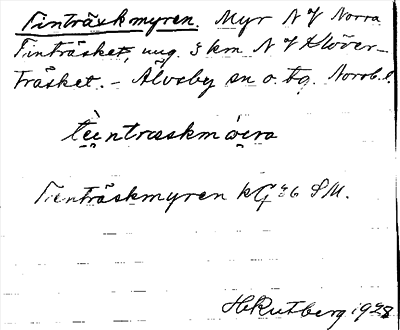 Tinträskmyren. Myr N of Norra
Tinträsket, ung. 3 km N of Klöver-
träsket. – Älvsby sn o. tg. Norrb. l.
Tinträskmyren kG 26 SM.
H Rutberg 1928